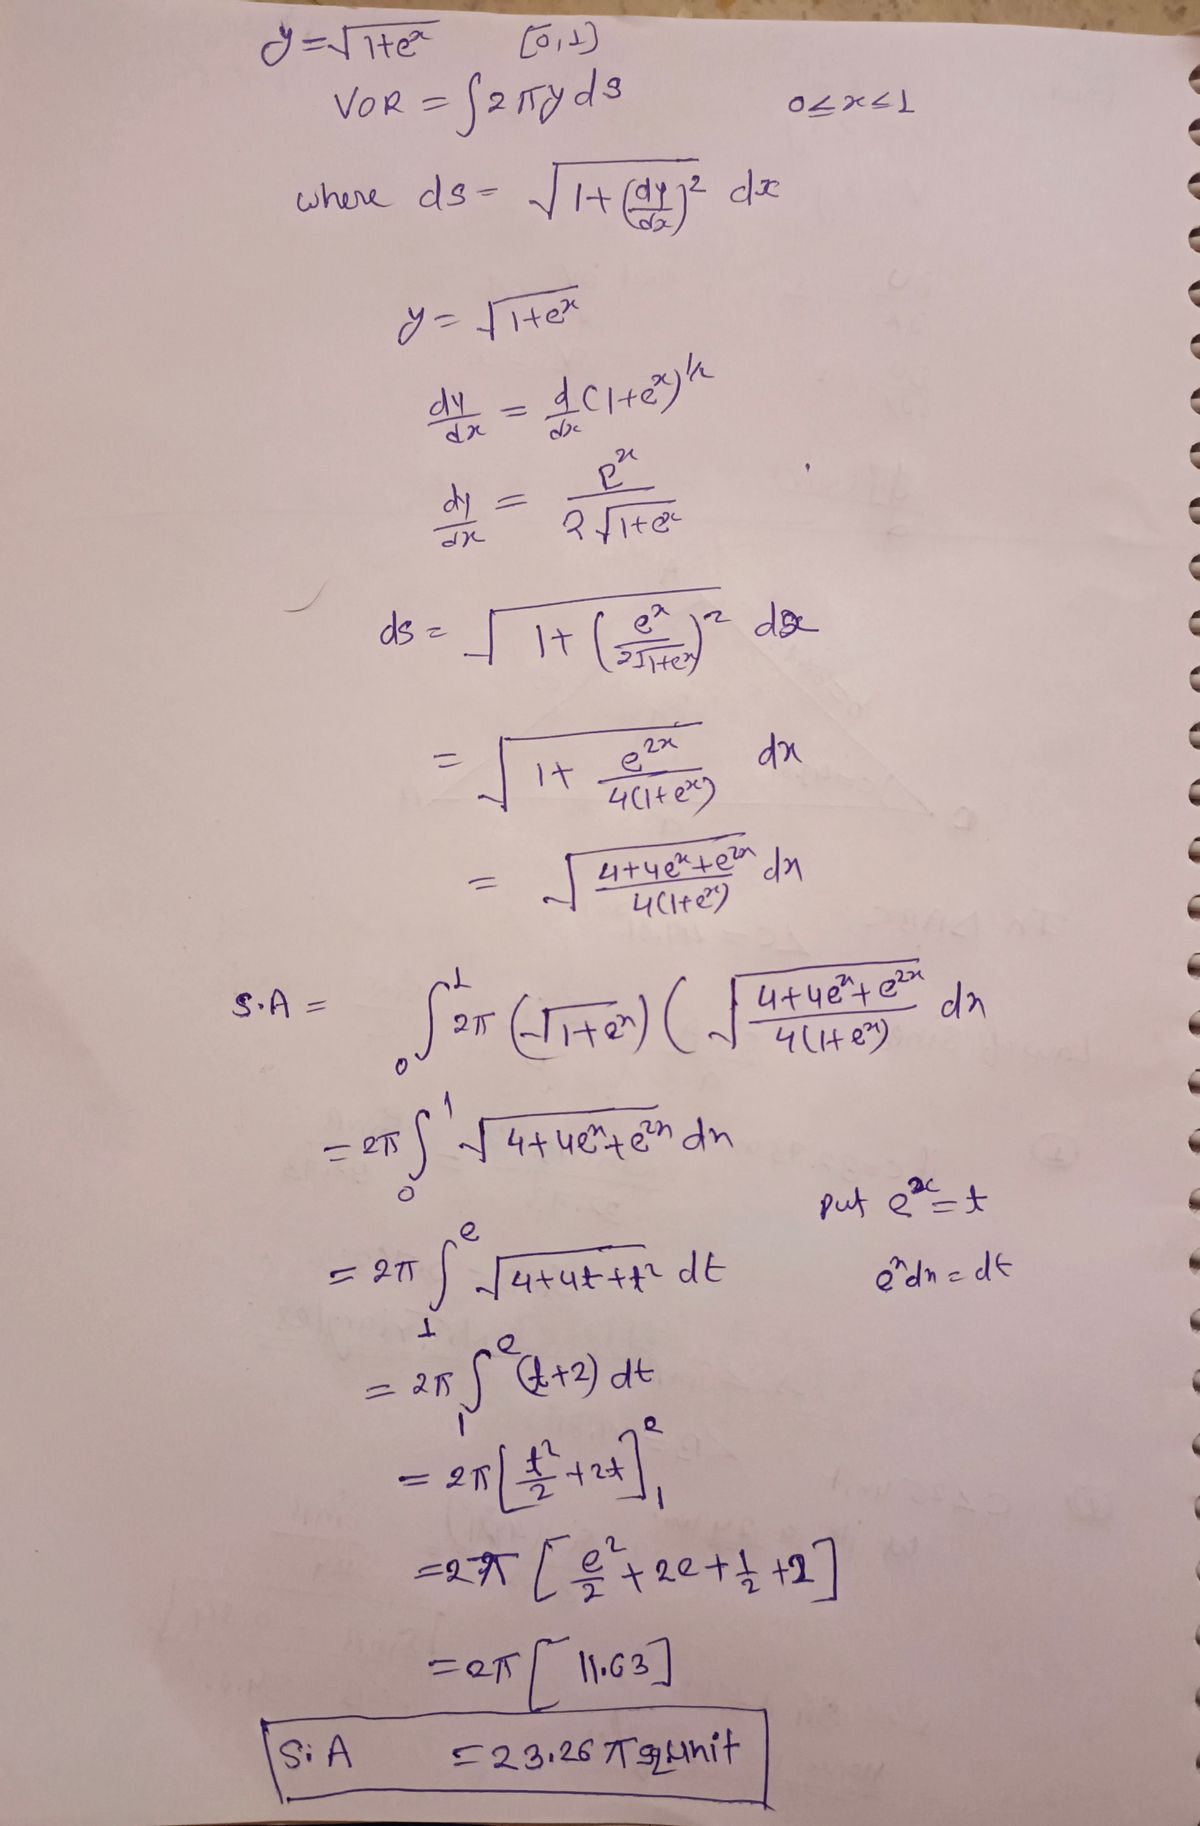 y = √(1+e^x) [0,1]
VOR = ∫2πy ds 0≤x≤1
where ds = √(1+(dy/dx)^2) dx
y = √(1+e^x)
dy/dx = d/dx (1+e^x)^1/2
dy/dx = e^x/(2√(1+e^x))
ds = √(1+(e^x/(2√(1+e^x)))^2) dx
= √(1+ e^2x/(4(1+e^x))) dx
= √((4+4e^x+e^2x)/(4(1+e^x))) dx
S.A = ∫_0^1 2π (√(1+e^x)) (√((4+4e^x+e^2x)/(4(1+e^x))) dx
= 2π ∫_0^1 √(4+4e^x+e^2x) dx
put e^x = t
= 2π ∫_1^e √(4+4t+t^2) dt e^x dx = dt
= 2π ∫_1^e (t+2) dt
= 2π [t^2/2 + 2t]_1^e
= 2π [e^2/2 + 2e + 1/2 + 2]
= 2π [11.63]
S.A = 23.26 π sq unit